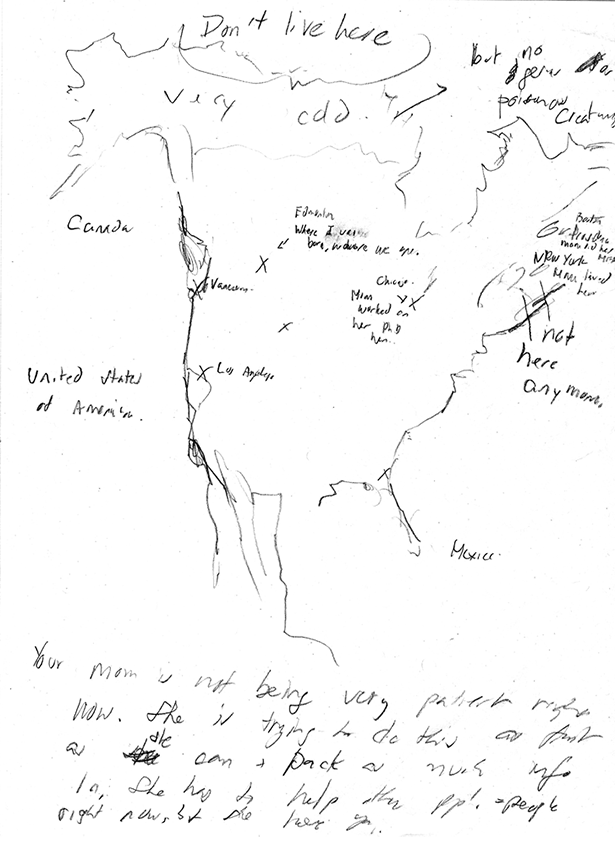 Don't live here
very cold.
but no
germs or
poisonous
Creatures
Canada
Edmonton
Where I was
born,
Vancouver.
Chicago.
Mom
worked on
her PhD
here.
Boston
New York
Mom lived
here
not
here
anymore.
Los Angeles
United States
of America.
Mexico.
Your mom is not being very patient right
now. She is trying to do this as fast
as she can & pack as much info
in. She has to help other ppl. = people
right now, but she loves you.